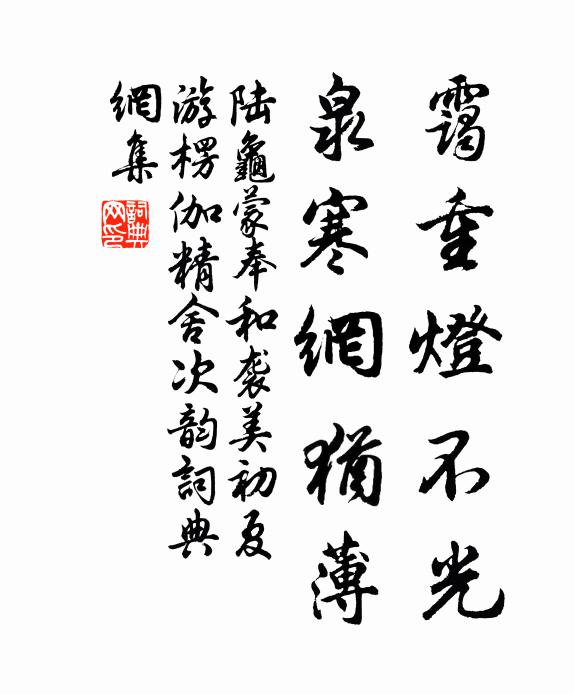 靄重燈不光
泉寒網猶薄
陆龜蒙奉和袭美初夏
游楞伽精舍次韵詞典
網集
詞典網印